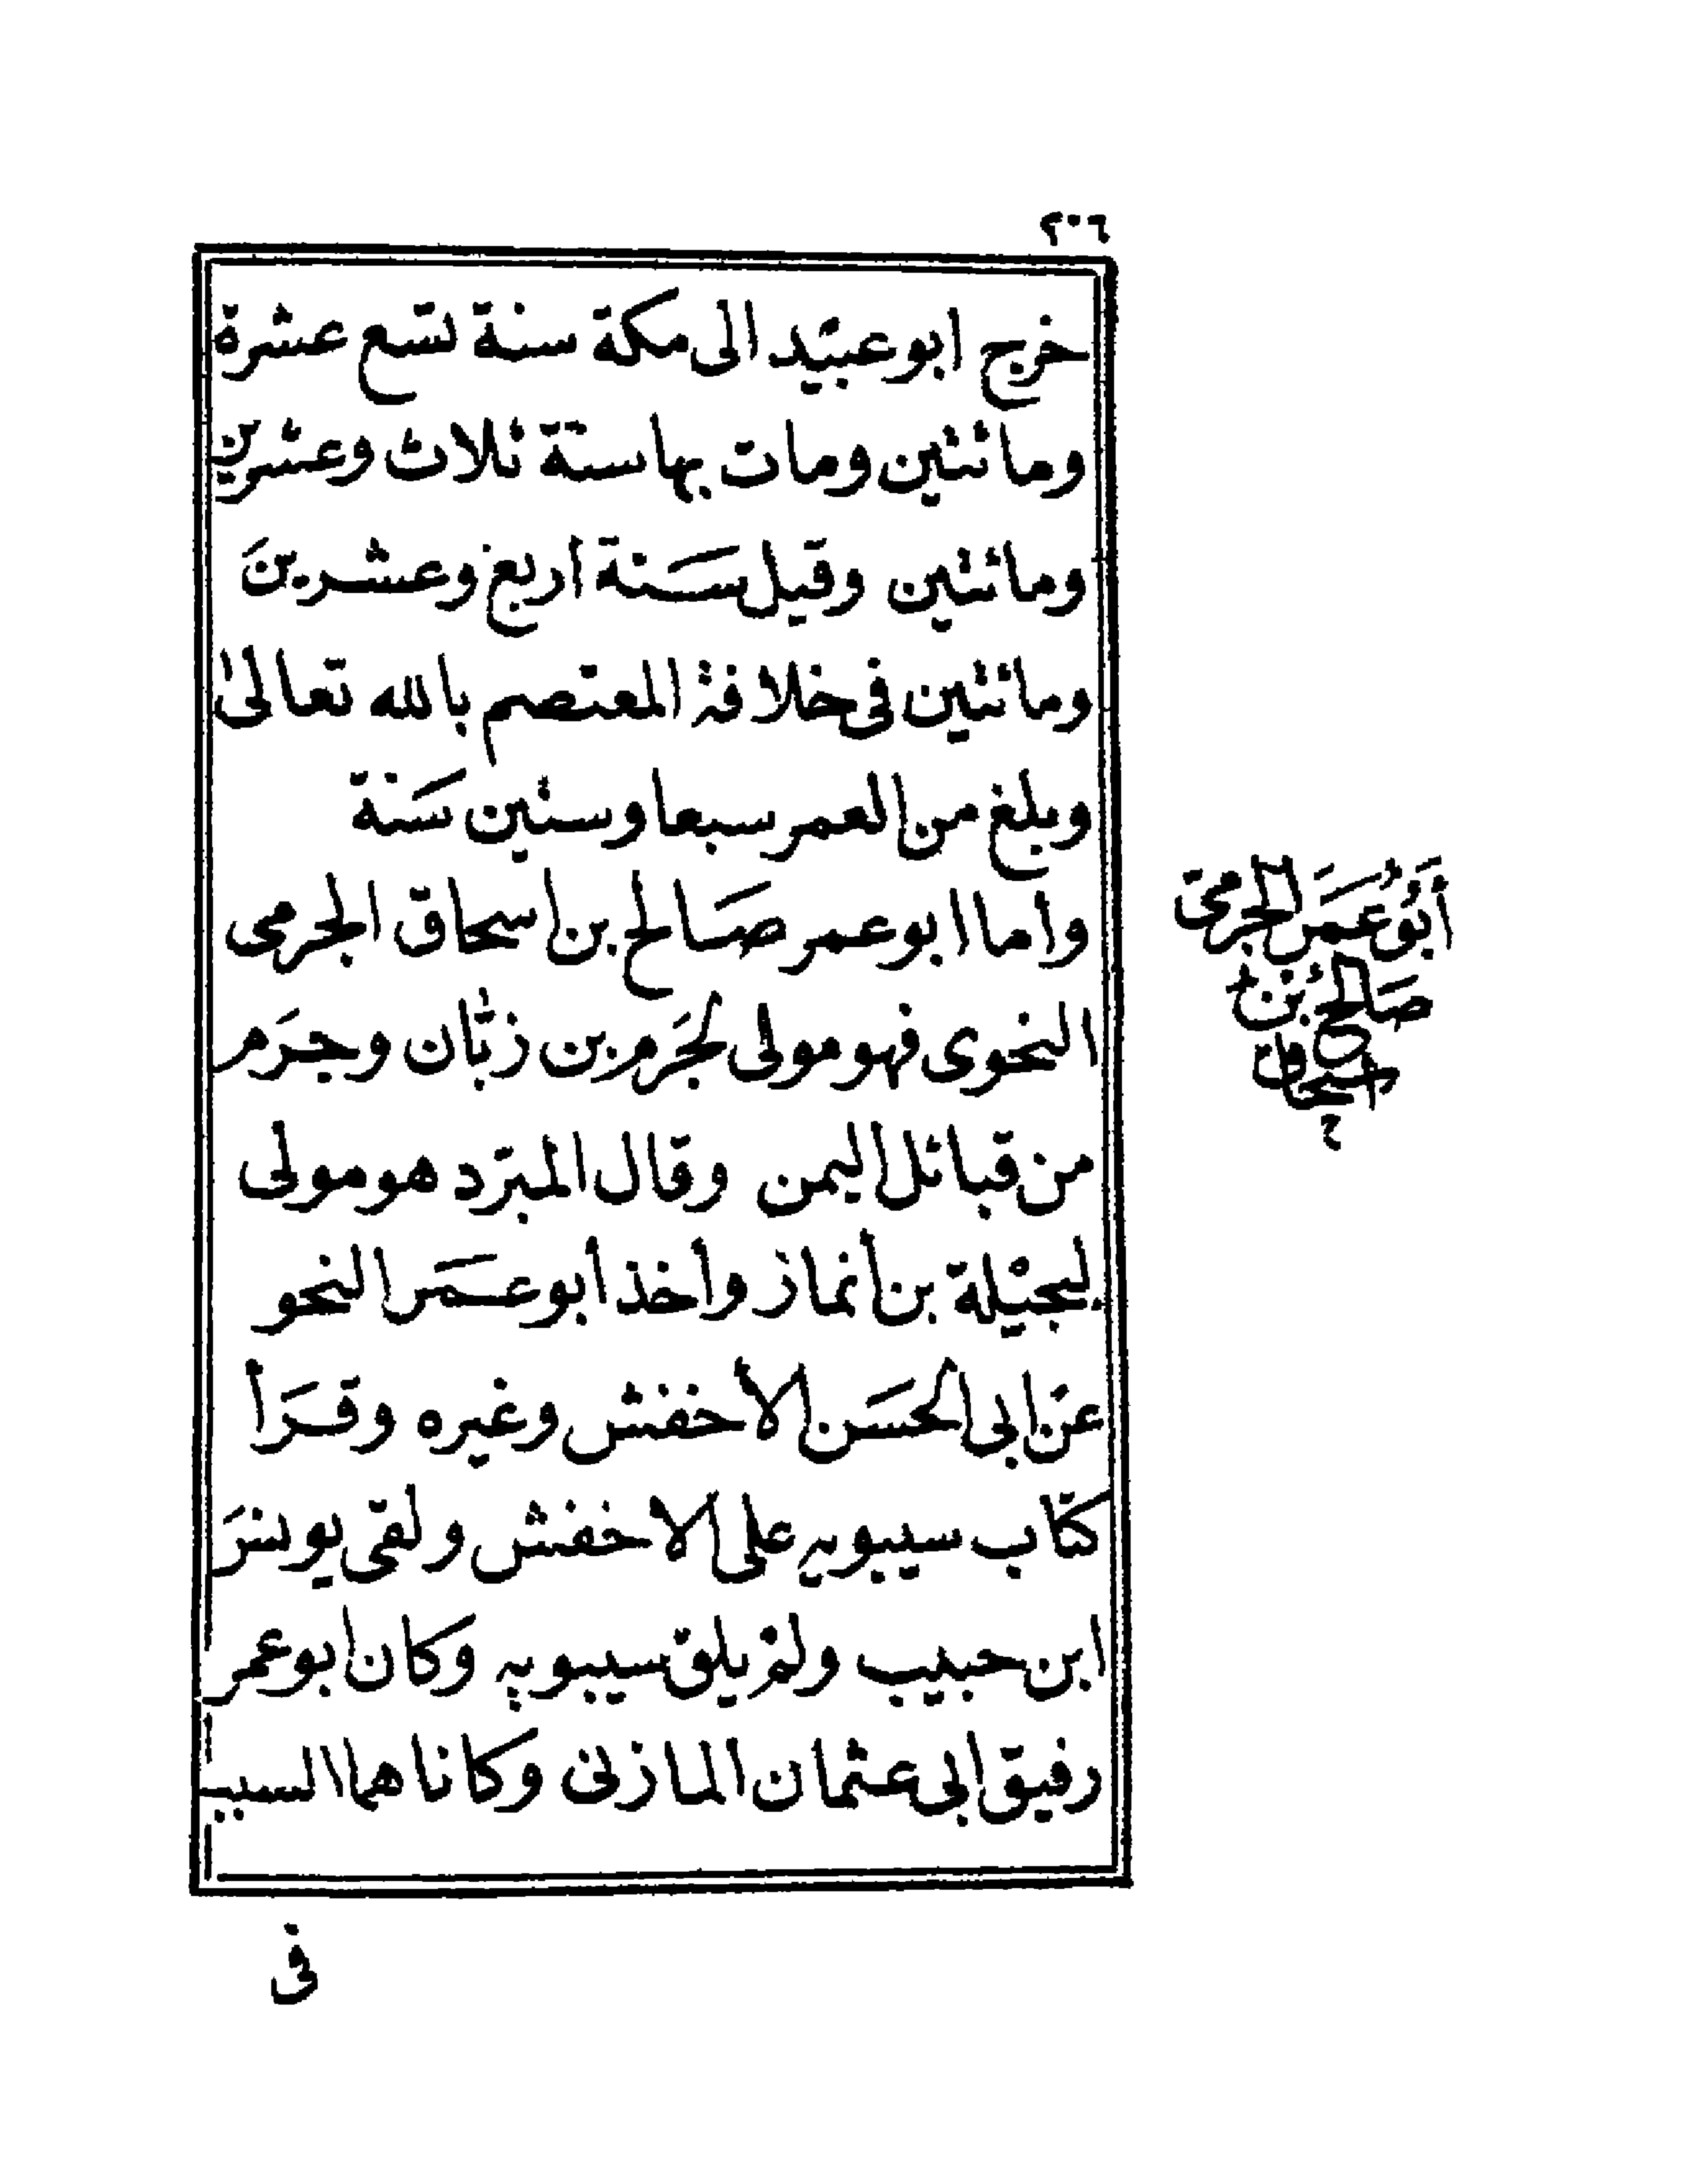 ٢٠٦
خرج ابو عبيد الى مكة سنة تسع عشرة
ومائتين ومات بها سنة ثلاث وعشرين
ومائتين وقيل سَنة اربع وعشرينَ
ومائتين فى خلافة المعتصم بالله تعالىٰ
وبلغ من العمر سبعا وستين سَنة
وأما ابو عمر صَالح بن اسحاق الجرمى
النحوى فهو مولى لجَرم بن زبّان وجرَم
من قبائل اليمن وقال المبرّد هو مولى
لبجيْلة بن أنماز وأخذ أبو عمَر النحو
عن ابى الحسَن الأخفش وغيره وقرَأ
كتاب سيبويه على الاخفش ولقى يونسَ
ابن حبيب ولم يلق سيبويه وكان ابو عمر
رفيق ابى عثمان المازنى وكانا هما السبب
فى
أبُو عمَر الجرمى
صَالحُ بْن
اسْحَاق